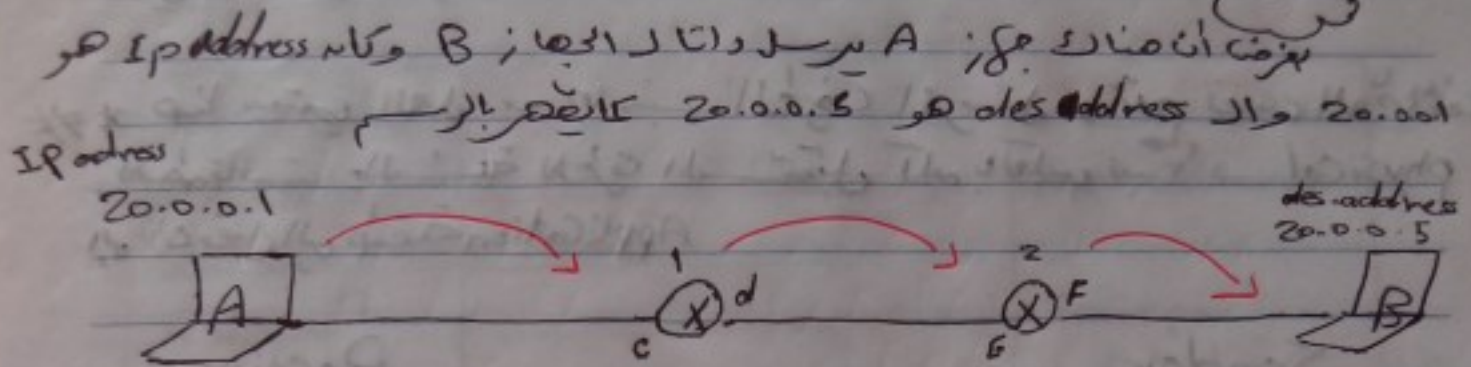 بفرض أن هناك جهاز A يرسل داتا لـ الجهاز B وكان Ip address هو
20.001 والـ des address هو 20.0.0.5 كما يظهر بالرسم
IP adress
20.0.0.1
des.address
20.0.0.5
A
1
d
c
2
F
B